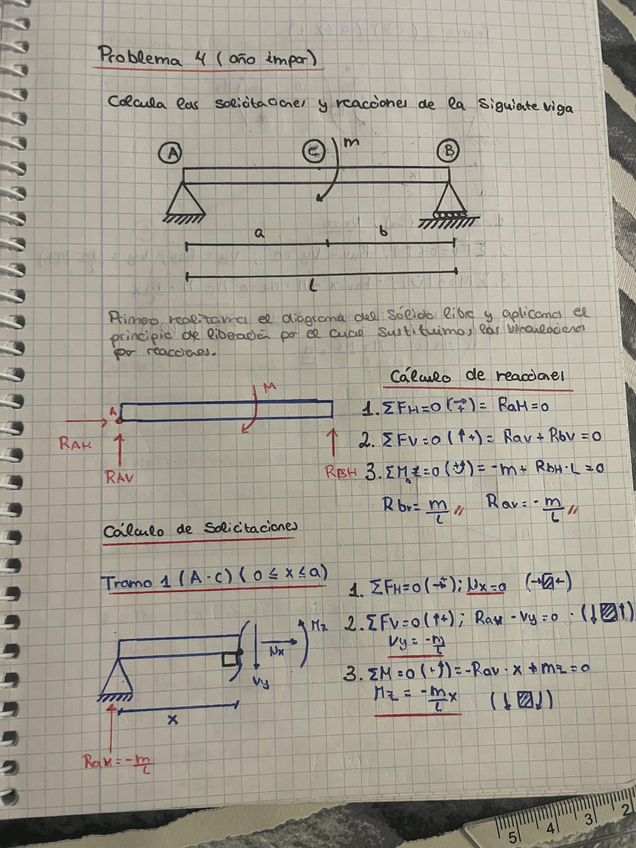 Problema 4 (año impar)
Calcula las solicitaciones y reacciones de la siguiente viga
A C m B
a b
L
Primero realizamos el diagrama del sólido libre y aplicamos el
principio de liberación por el cual sustituimos las vinculaciones
por reacciones.
Cálculo de reacciones
A M
RAH
RAV
RBH
1. ΣFH=0 (→+) = RaH=0
2. ΣFV=0 (↑+) = Rav + Rbv = 0
3. ΣMz=0 (+↺) = -m + RbH·L=0
Rbv = m/L // Rav = -m/L //
Cálculo de Solicitaciones
Tramo 1 (A-C) (0 ≤ x ≤ a)
Mz
Nx
Vy
x
RaV = -m/L
1. ΣFH=0 (→+); Nx=0
2. ΣFV=0 (↑+); Rav - Vy=0
Vy = -m/L
3. ΣM=0 (+↺) = -Rav·x + mz=0
Mz = -m/L x
5 4 3 2